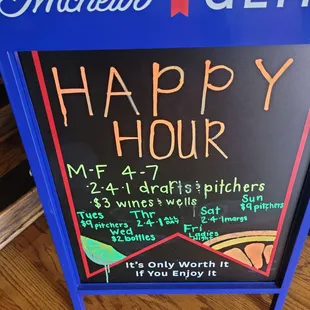 Michelob ULTRA
HAPPY
HOUR
M-F 4-7
·2-4-1 drafts & pitchers
·$3 wines & wells
Tues
$9 pitchers
Wed
$2 bottles
Thr
2·4·1 all day
Fri
Ladies
Night
Sat
2·4·1 margs
Sun
$9 pitchers
It's Only Worth It
If You Enjoy It